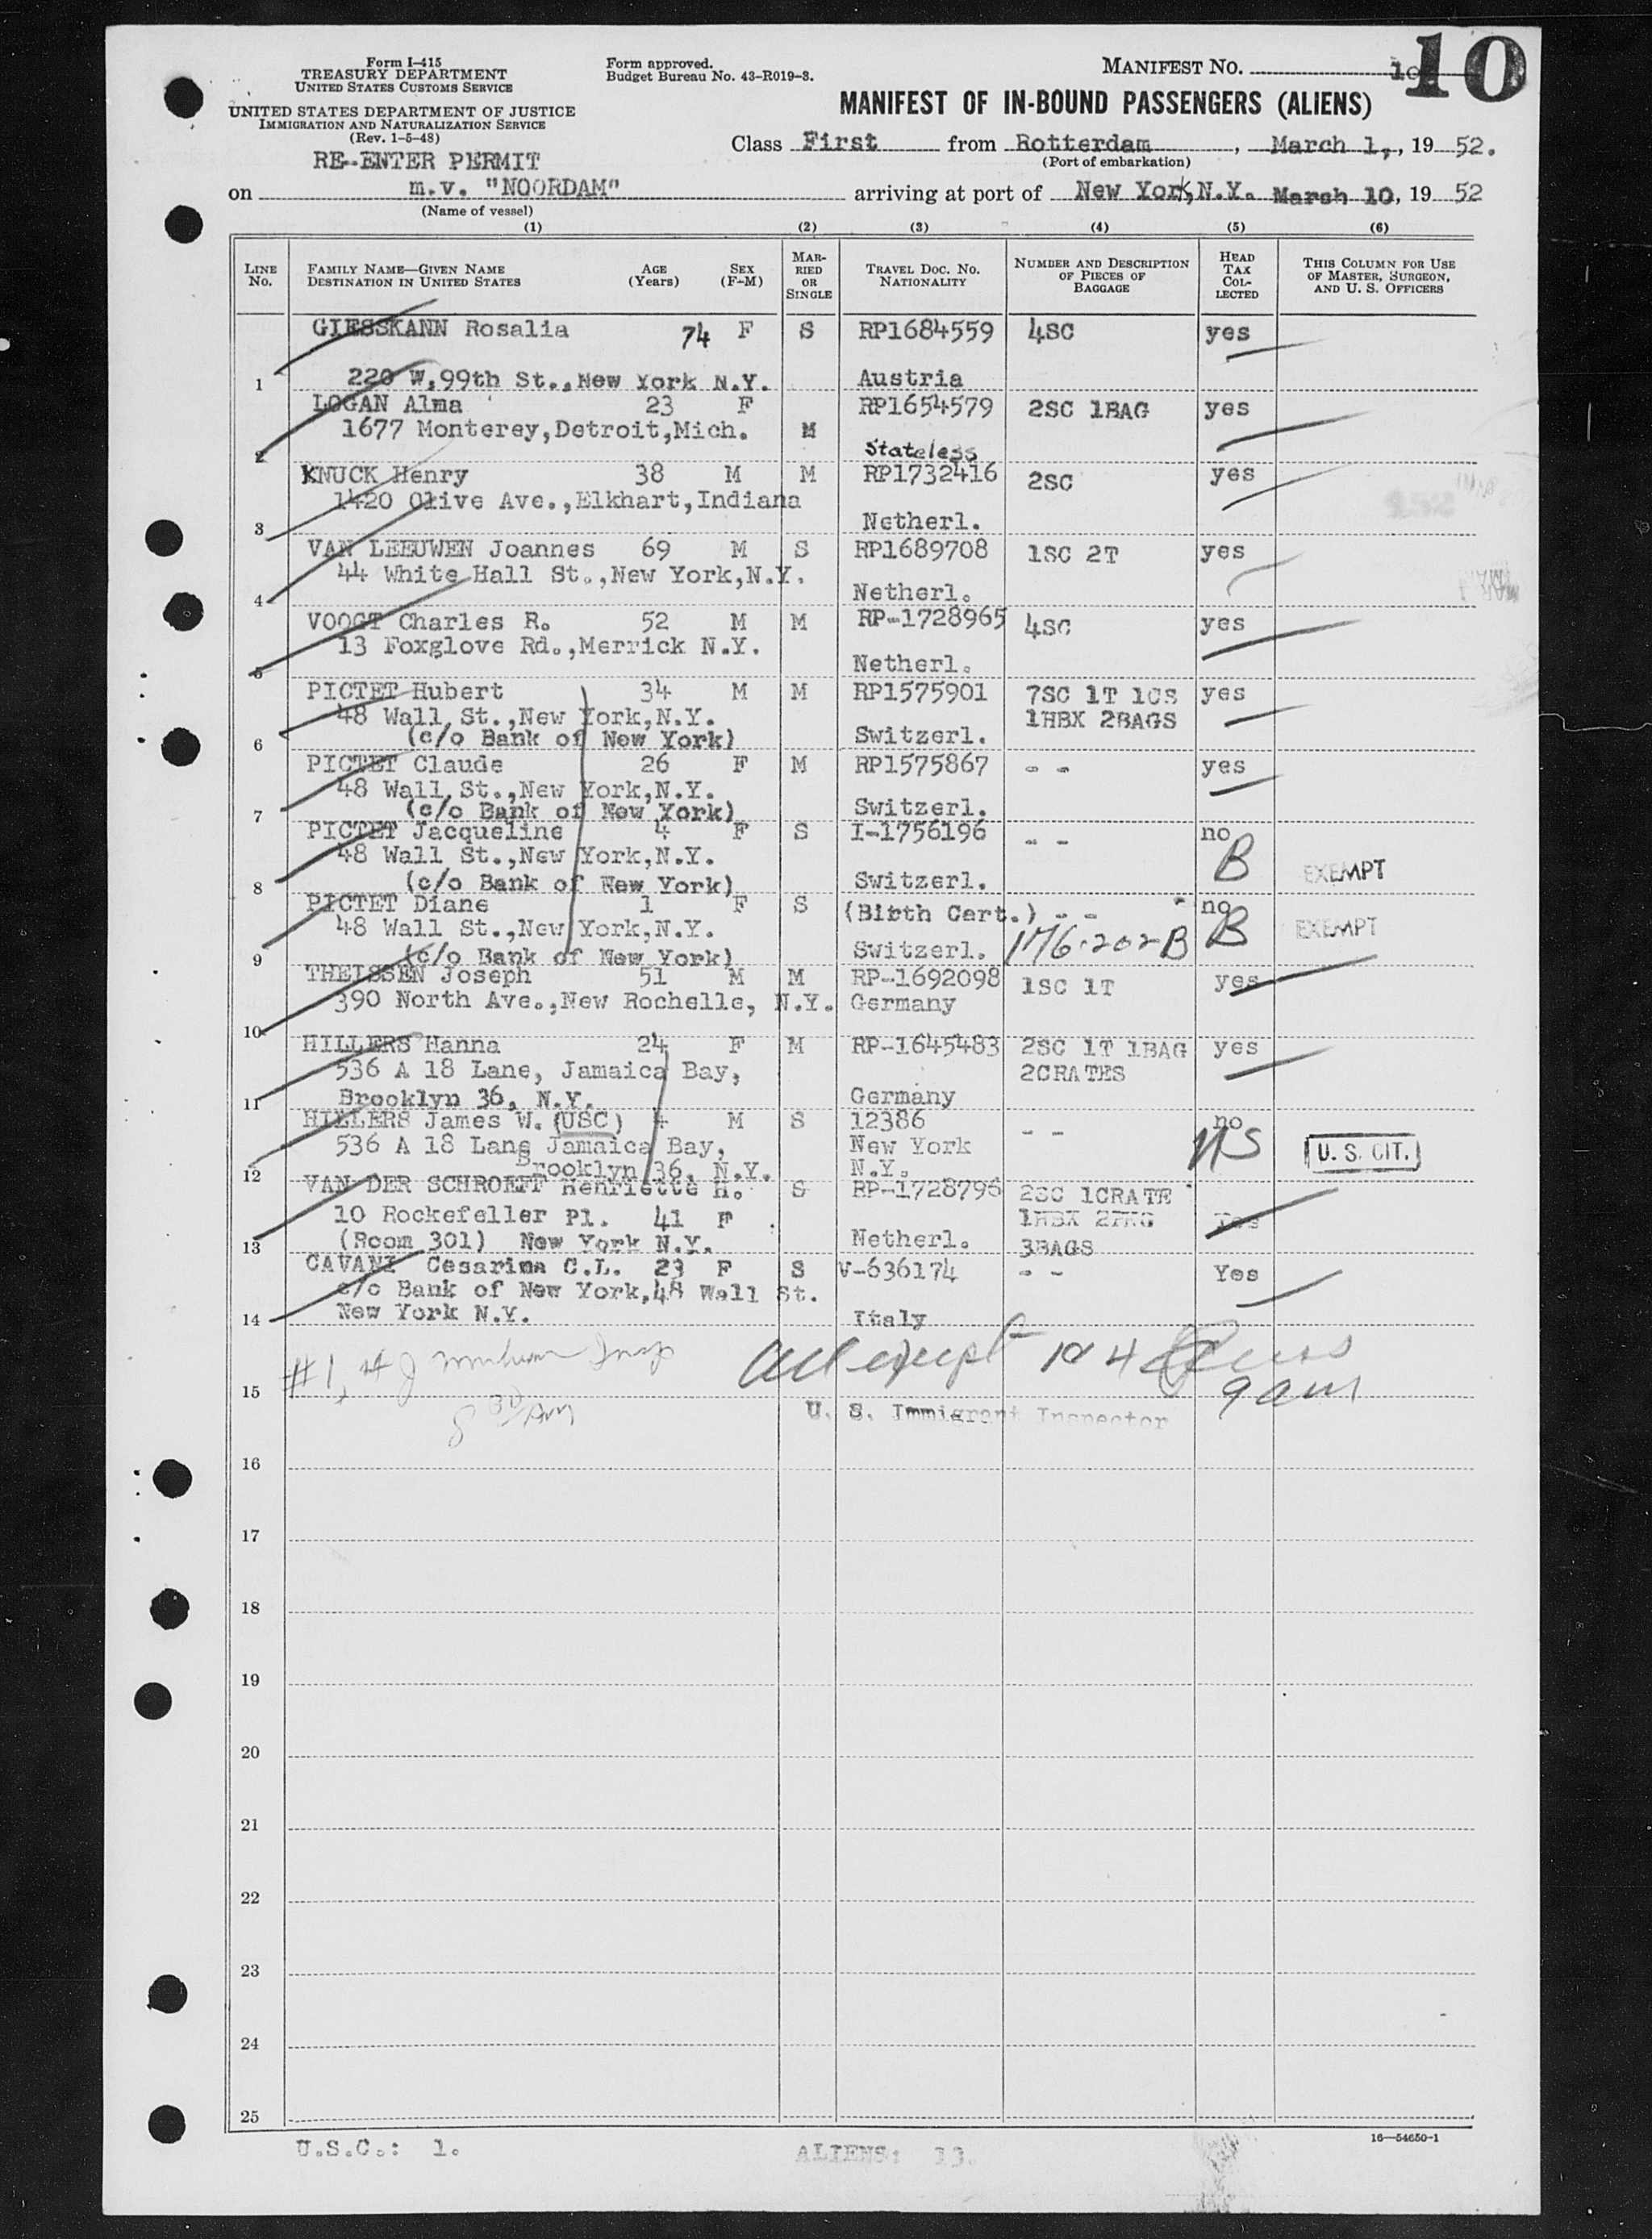 Form I-415
TREASURY DEPARTMENT
UNITED STATES CUSTOMS SERVICE
UNITED STATES DEPARTMENT OF JUSTICE
IMMIGRATION AND NATURALIZATION SERVICE
(Rev. 1-5-48)
RE-ENTER PERMIT
Form approved.
Budget Bureau No. 43-R019-3.
MANIFEST NO. 10
MANIFEST OF IN-BOUND PASSENGERS (ALIENS)
Class First from Rotterdam, March 1, 1952.
(Port of embarkation)
on m.v. "NOORDAM" arriving at port of New York, N.Y. March 10, 1952
(Name of vessel)
(1) (2) (3) (4) (5) (6)
LINE NO. FAMILY NAME—GIVEN NAME DESTINATION IN UNITED STATES AGE (Years) SEX (F-M) MARRIED OR SINGLE TRAVEL DOC. NO. NATIONALITY NUMBER AND DESCRIPTION OF PIECES OF BAGGAGE HEAD TAX COLLECTED THIS COLUMN FOR USE OF MASTER, SURGEON, AND U. S. OFFICERS
GIESSKANN Rosalia 74 F S RP1684559 4SC yes
1 220 W.99th St.,New York N.Y. Austria
LOGAN Alma 23 F RP1654579 2SC 1BAG yes
1677 Monterey,Detroit,Mich. M
2 Stateless
KNUCK Henry 38 M M RP1732416 2SC yes
1420 Olive Ave.,Elkhart,Indiana
3 Netherl.
VAN LEEUWEN Joannes 69 M S RP1689708 1SC 2T yes
44 White Hall St.,New York,N.Y.
4 Netherl.
VOOGT Charles R. 52 M M RP-1728965 4SC yes
13 Foxglove Rd.,Merrick N.Y.
5 Netherl.
PICTET Hubert 34 M M RP1575901 7SC 1T 1CS yes
48 Wall St.,New York,N.Y. 1HBX 2BAGS
6 (c/o Bank of New York) Switzerl.
PICTET Claude 26 F M RP1575867 - - yes
48 Wall St.,New York,N.Y.
7 (c/o Bank of New York) Switzerl.
PICTET Jacqueline 4 F S I-1756196 - - no
48 Wall St.,New York,N.Y. B EXEMPT
8 (c/o Bank of New York) Switzerl.
PICTET Diane 1 F S (Birth Cert.) - - no
48 Wall St.,New York,N.Y. B EXEMPT
9 (c/o Bank of New York) Switzerl. 176.202B
THEISSEN Joseph 51 M M RP-1692098 1SC 1T yes
390 North Ave.,New Rochelle, N.Y. Germany
10
HILLERS Hanna 24 F M RP-1645483 2SC 1T 1BAG yes
536 A 18 Lane, Jamaica Bay, 2CRATES
11 Brooklyn 36, N.Y. Germany
HILLERS James W. (USC) 4 M S 12386 - - no
536 A 18 Lane Jamaica Bay, New York U. S. CIT.
12 Brooklyn 36, N.Y. N.Y.
VAN DER SCHROEFF Henriette H. S RP-1728796 2SC 1CRATE
10 Rockefeller Pl. 41 F 1HBX 2PKG Yes
13 (Room 301) New York N.Y. Netherl. 3BAGS
CAVANI Cesarina C.L. 23 F S V-636174 - - Yes
c/o Bank of New York,48 Wall St.
14 New York N.Y. Italy
15 All exempt
U. S. Immigrant Inspector
16
17
18
19
20
21
22
23
24
25
16—54650-1
U.S.C.: 1. ALIENS: 13.